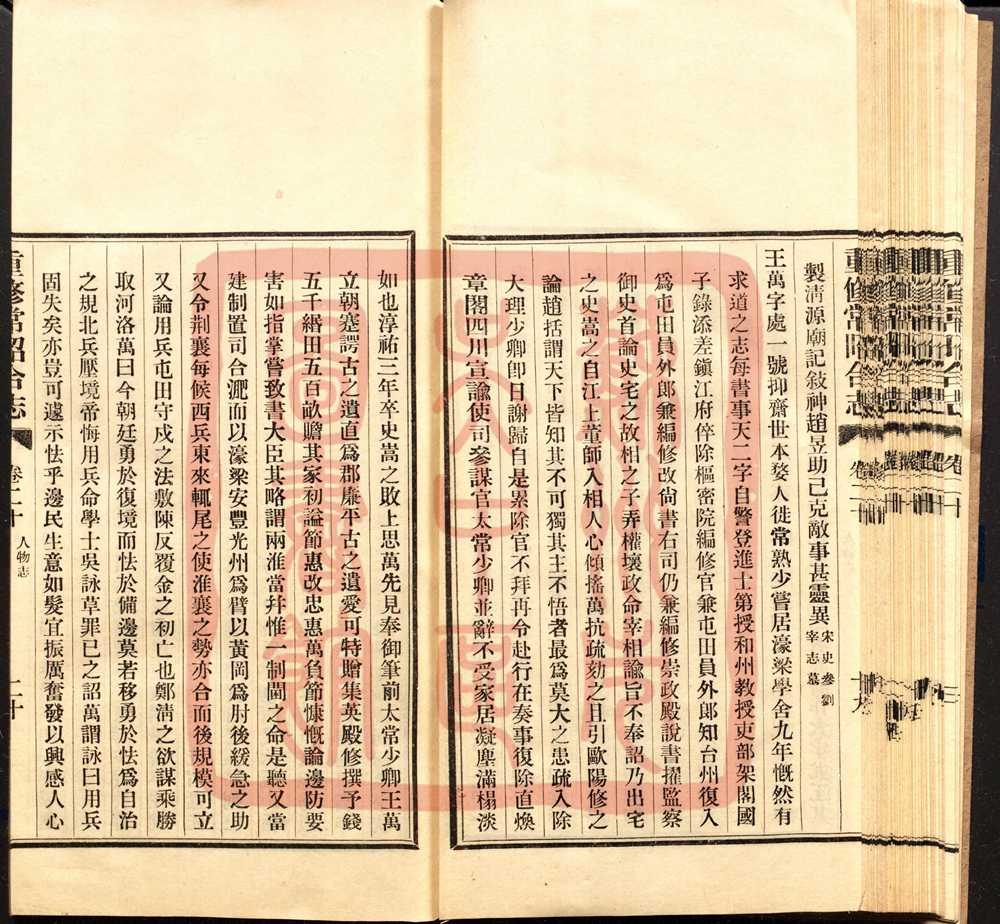 製淸源廟記敍神趙昱助己克敵事甚靈異宋史參劉宰志墓
王萬字處一號抑齋世本婺人徙常熟少嘗居濠梁學舍九年慨然有
求道之志每書事天二字自警登進士第授和州敎授吏部架閣國
子錄添差鎭江府倅除樞密院編修官兼屯田員外郎知台州復入
爲屯田員外郎兼編修改尙書右司仍兼編修崇政殿說書擢監察
御史首論史宅之故相之子弄權壞政命宰相諭旨不奉詔乃出宅
之史嵩之自江上董師入相人心傾搖萬抗疏劾之且引歐陽修之
論趙括謂天下皆知其不可獨其主不悟者最爲莫大之患疏入除
大理少卿卽日謝歸自是累除官不拜再令赴行在奏事復除直煥
章閣四川宣諭使司參謀官太常少卿並辭不受家居凝塵滿榻淡
如也淳祐三年卒史嵩之敗上思萬先見奉御筆前太常少卿王萬
立朝蹇諤古之遺直爲郡廉平古之遺愛可特贈集英殿修撰予錢
五千緡田五百畝贍其家初謚節惠改忠惠萬負節慷慨論邊防要
害如指掌嘗致書大臣其略謂兩淮當幷惟一制閫之命是聽又當
建制置司合淝而以濠梁安豐光州爲臂以黃岡爲肘後緩急之助
又令荆襄每候西兵東來輒尾之使淮襄之勢亦合而後規模可立
又論用兵屯田守戍之法敷陳反覆金之初亡也鄭淸之欲謀乘勝
取河洛萬曰今朝廷勇於復境而怯於備邊莫若移勇於怯爲自治
之規北兵壓境帝悔用兵命學士吳詠草罪已之詔萬謂詠曰用兵
固失矣亦豈可遽示怯乎邊民生意如髮宜振厲奮發以興感人心
重修常昭合志 卷二十 人物志 二十